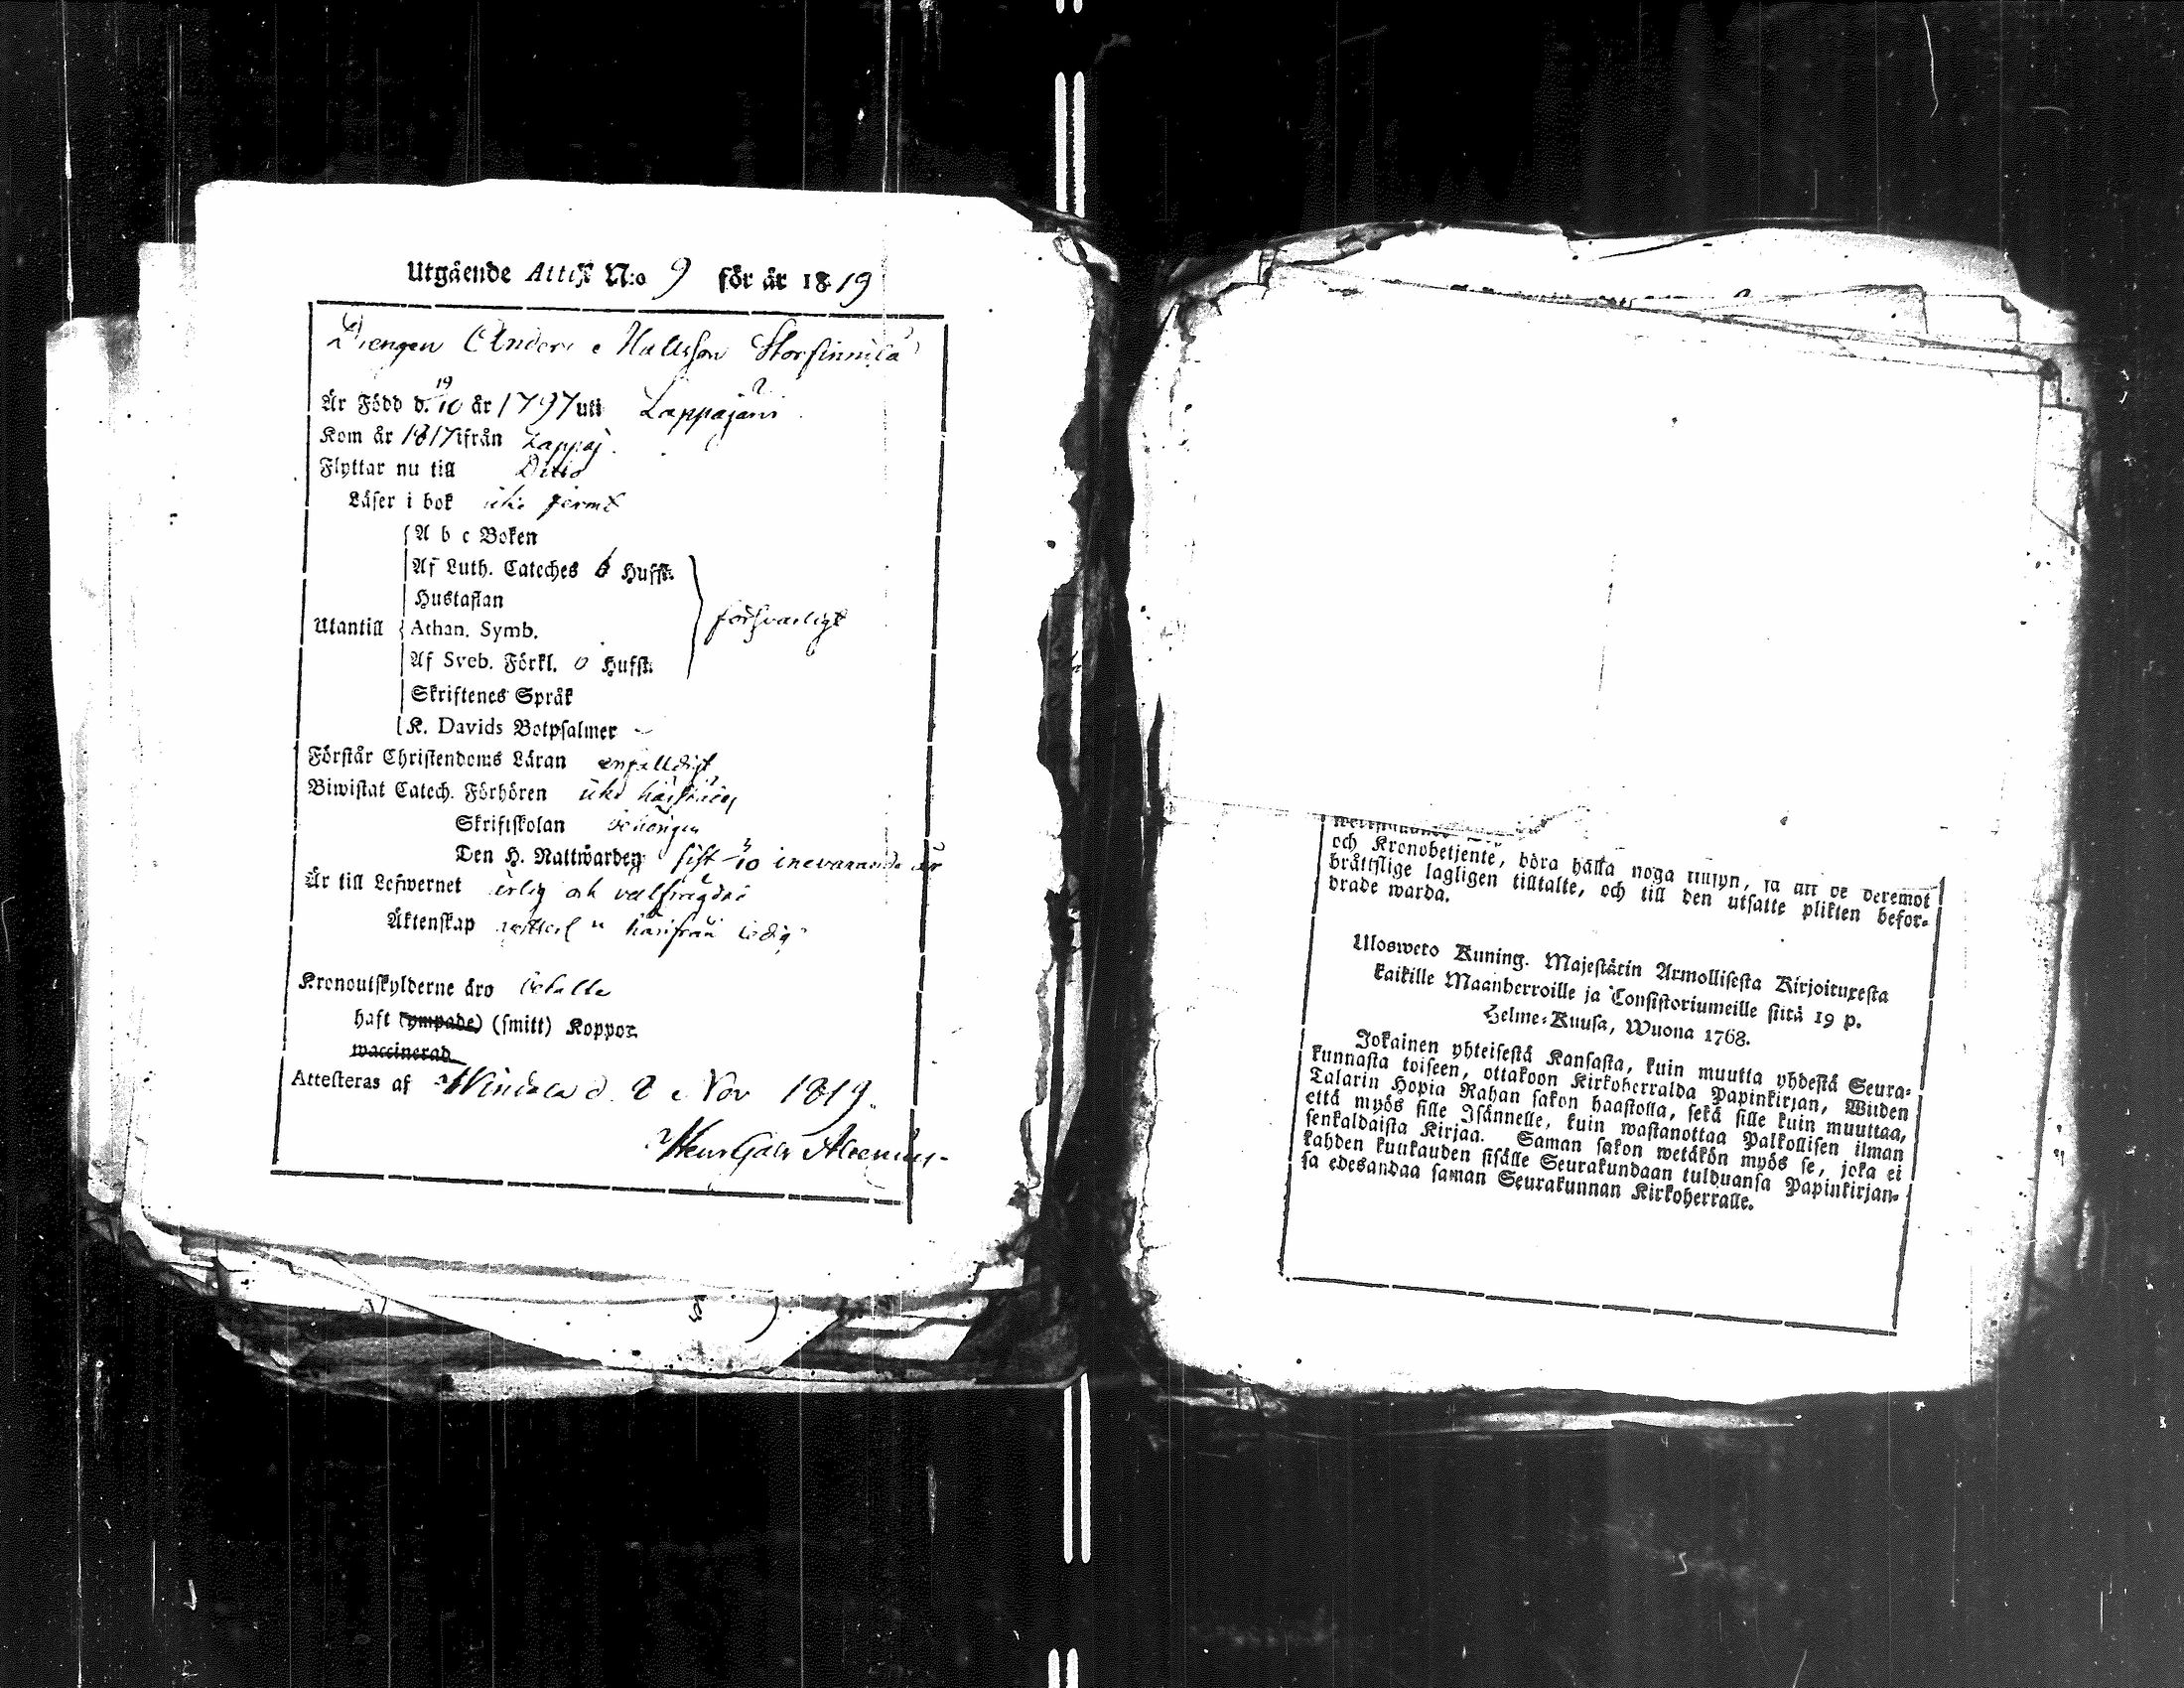 Utgående Attest N:o 9 för år 1819
Drengen Anders Mattsson Storsinnilä
Är Född d. 19/10 år 1797 uti Lappajärvi
Kom år 1817 ifrån Lappaj.
Flyttar nu till Ditto
Läser i bok icke färmt
A b c Boken
Af Luth. Cateches 6 Hufst.
Hustaflan
Utantill Athan. Symb. försvarligt
Af Sveb. Förkl. 0 Hufst.
Skriftenes Språk
K. Davids Botpsalmer
Förstår Christendoms Läran enfalldigt
Biwistat Catech. Förhören icke härstädes
Skriftskolan behörigen
Den H. Nattwarden sist /10 innevarande år
Är till Lefwernet ärlig och välfrägdad
Äktenskap härifrån ledig
Kronoutskylderne äro betalte
haft (ympade) (smitt) Koppor
waccinerad
Attesteras af Windala d. 2 Nov 1819.
Henr Gabr Alcenius
och Kronobetjente, böra hålla noga tillsyn, så att de deremot
bråttslige lagligen tilltalte, och till den utsatte plikten befor-
drade warda.
Ulosweto Kuning. Majestätin Armollisesta Kirjoituxesta
kaikille Maanherroille ja Consistoriumeille siitä 19 p.
Helme-Kuusa, Wuona 1768.
Jokainen yhteisestä Kansasta, kuin muutta yhdestä Seura-
kunnasta toiseen, ottakoon Kirkoherralda Papinkirjan, Wiiden
Talarin Hopia Rahan sakon haastolla, sekä sille kuin muuttaa,
että myös sille Isännelle, kuin wastanottaa Palkollisen ilman
senkaldaista Kirjaa. Saman sakon wetäkön myös se, joka ei
kahden kuukauden sisälle Seurakundaan tulduansa Papinkirjan-
sa edesandaa saman Seurakunnan Kirkoherralle.